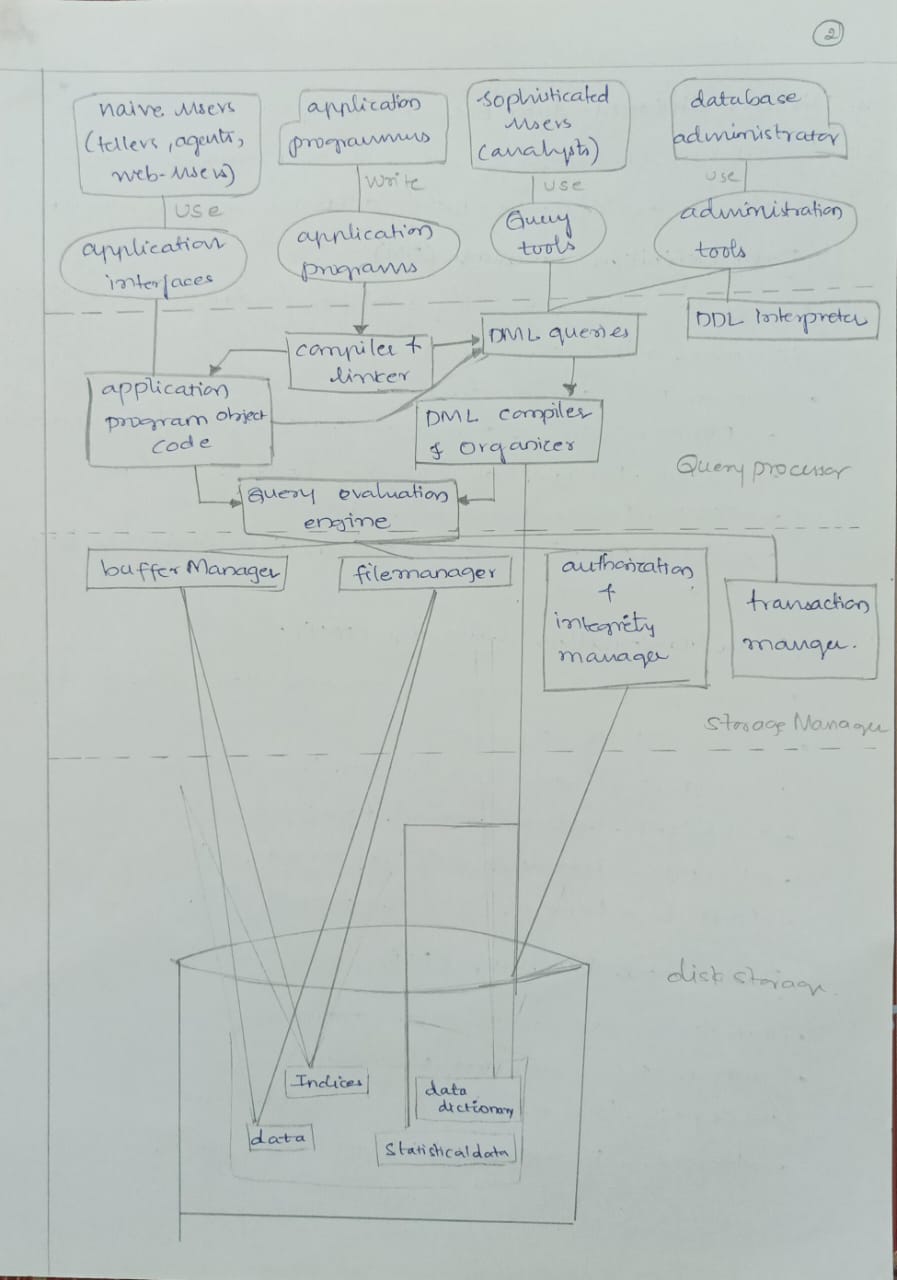 2
naive users
(tellers, agents,
web-users)
application
programmers
sophisticated
users
(analysts)
database
administrator
use
write
use
use
application
interfaces
application
programs
Query
tools
administration
tools
compiler +
linker
DML queries
DDL Interpreter
application
program object
code
DML compiler
& organizer
Query processor
Query evaluation
engine
buffer Manager
filemanager
authorization
+
integrety
manager
transaction
manger.
Storage Manager
disk storage
Indices
data
dictionary
data
Statistical data